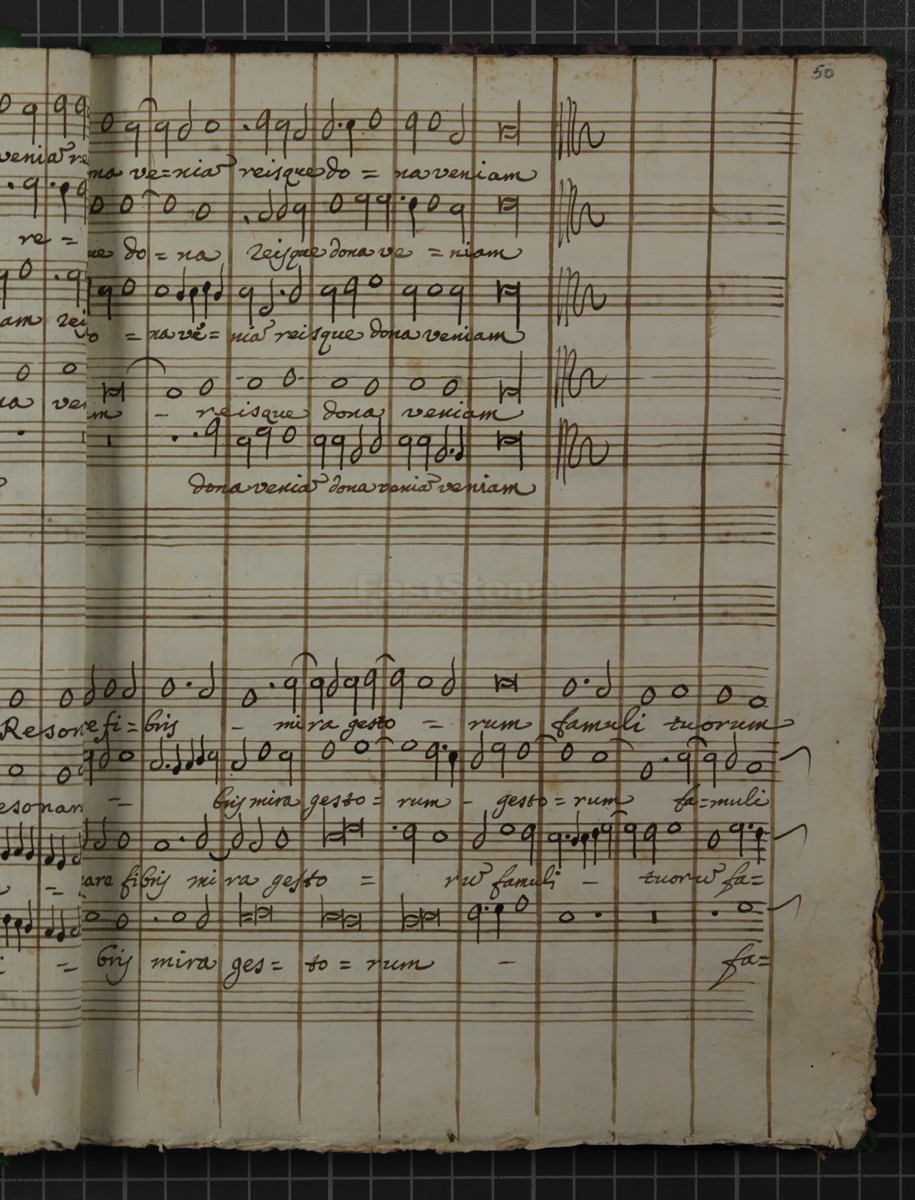 50
veniã re na ve=niã reisque do = na veniam
re = ue do = na reisque dona ve = niam
am rei o = na ve= niã reisque dona veniam
na ve m - reisque dona veniam
dona veniã dona veniã veniam
FastStone
Resone fi= bris - mira gesto = rum famuli tuorum
esonan - bris mira gesto = rum - gesto = rum fa=muli
= are fibris mira gesto = rũ famuli - tuorũ fa=
= bris mira ges= to = rum - fa=